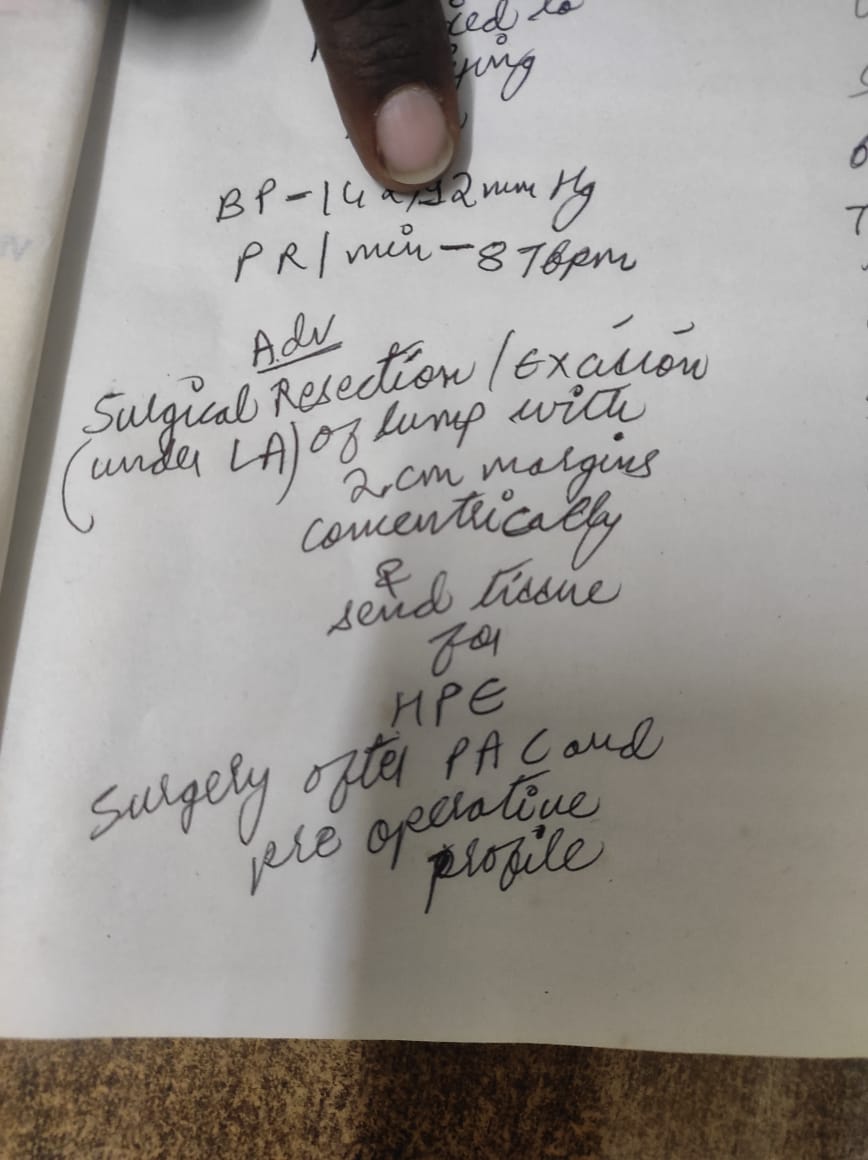 BP-142/92 mm Hg
PR/min-87bpm
Adv
Surgical Resection / Excision
(under LA) of lump with
2cm margins
concentrically
&
send tissue
for
HPE
Surgery after PAC and
pre operative
profile